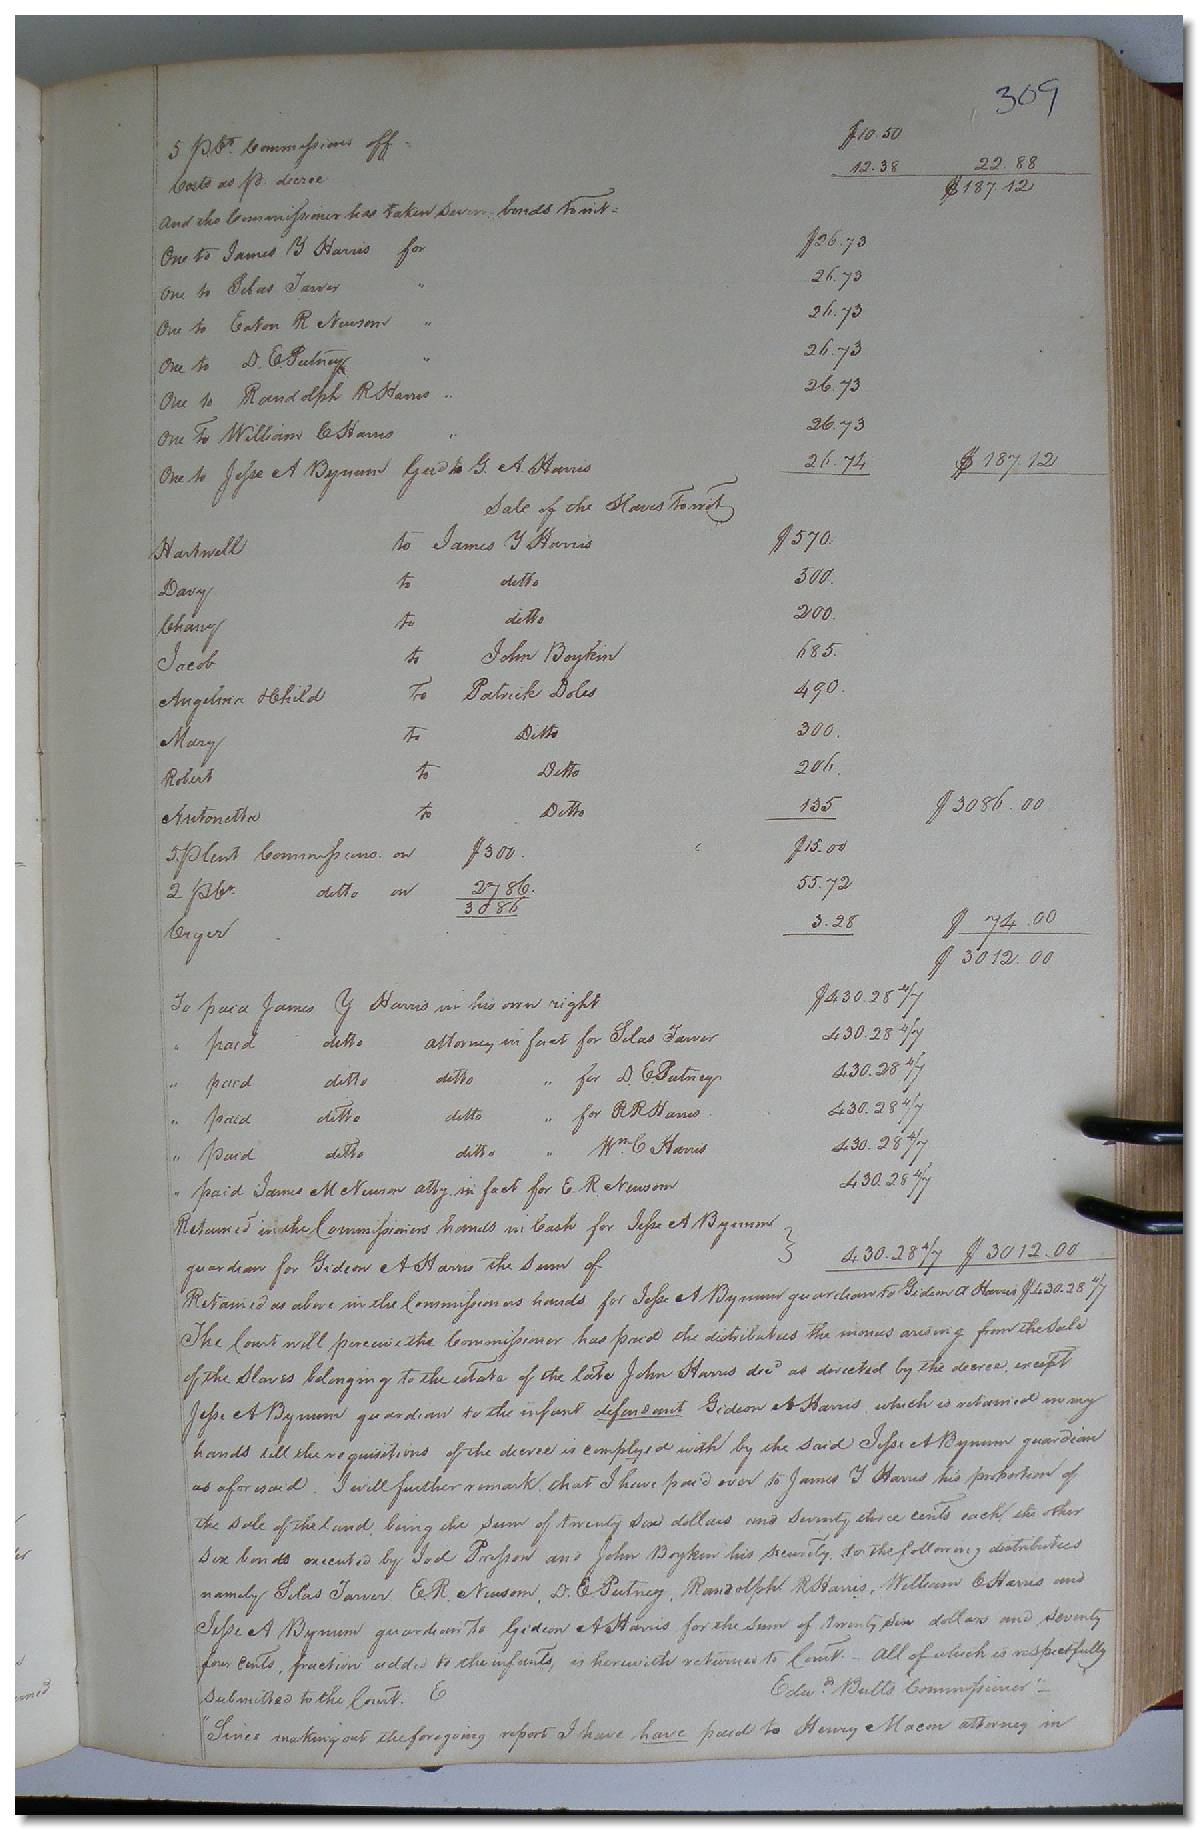 309
5 pCt. Commissions off $10.50
Costs as p. decree 12.38 22.88
$187.12
And the Commissioner has taken seven bonds To wit
One to James Y Harris for $26.73
One to Silas Tarver " 26.73
One to Eaton R Newsom " 26.73
One to D. E Putney " 26.73
One to Randolph R Harris " 26.73
One To William C Harris " 26.73
One to Jesse A Bynum Gud to G. A. Harris 26.74 $187.12
Sale of the Slaves To wit
Hartwell to James Y Harris $570.
Davy to ditto 500.
Chany to ditto 200.
Jacob to John Boykin 685.
Angelina & Child To Patrick Doles 490.
Mary to Ditto 300.
Robert to Ditto 206.
Antonetta to Ditto 135 $3086.00
5 pCent Commissions on $300. $15.00
2 pCt. ditto on 2786. 55.72
3086
Cryer 3.28 $74.00
$3012.00
To paid James Y Harris in his own right $430.28 4/7
" paid ditto attorney in fact for Silas Tarver 430.28 4/7
" paid ditto ditto " for D. E Putney 430.28 4/7
" paid ditto ditto " for R R Harris 430.28 4/7
" paid ditto ditto " Wm. C Harris 430.28 4/7
" paid James M Newsom atty. in fact for E. R. Newsom 430.28 4/7
Retained in the Commissioners hands in Cash for Jesse A Bynum
guardian for Gideon A Harris the sum of 430.28 4/7 $3012.00
Retained as above in the Commissioners hands for Jesse A Bynum guardian to Gideon A Harris $430.28 4/7
The Court will perceive the Commissioner has paid the distributees the monies arising from the sale
of the slaves belonging to the estate of the late John Harris decd as directed by the decree, except
Jesse A Bynum guardian to the infant defendant Gideon A Harris, which is retained in my
hands till the requisitions of the decree is complyed with by the said Jesse A Bynum guardian
as aforesaid. I will further remark, that I have paid over to James Y Harris his proportion of
the sale of the land, being the sum of twenty six dollars and seventy three cents each, the other
six bonds executed by Joel Presson and John Boykin his security, to the following distributees
namely Silas Tarver E. R. Newsom, D. E. Putney, Randolph R Harris, William C Harris and
Jesse A Bynum guardian to Gideon A Harris for the sum of twenty six dollars and seventy
four cents, fraction added to the infants, is herewith returned to Court. - All of which is respectfully
submitted to the Court. E Edwd. Butts Commissioner" -
"Since making out the foregoing report I have have paid to Henry Macon attorney in